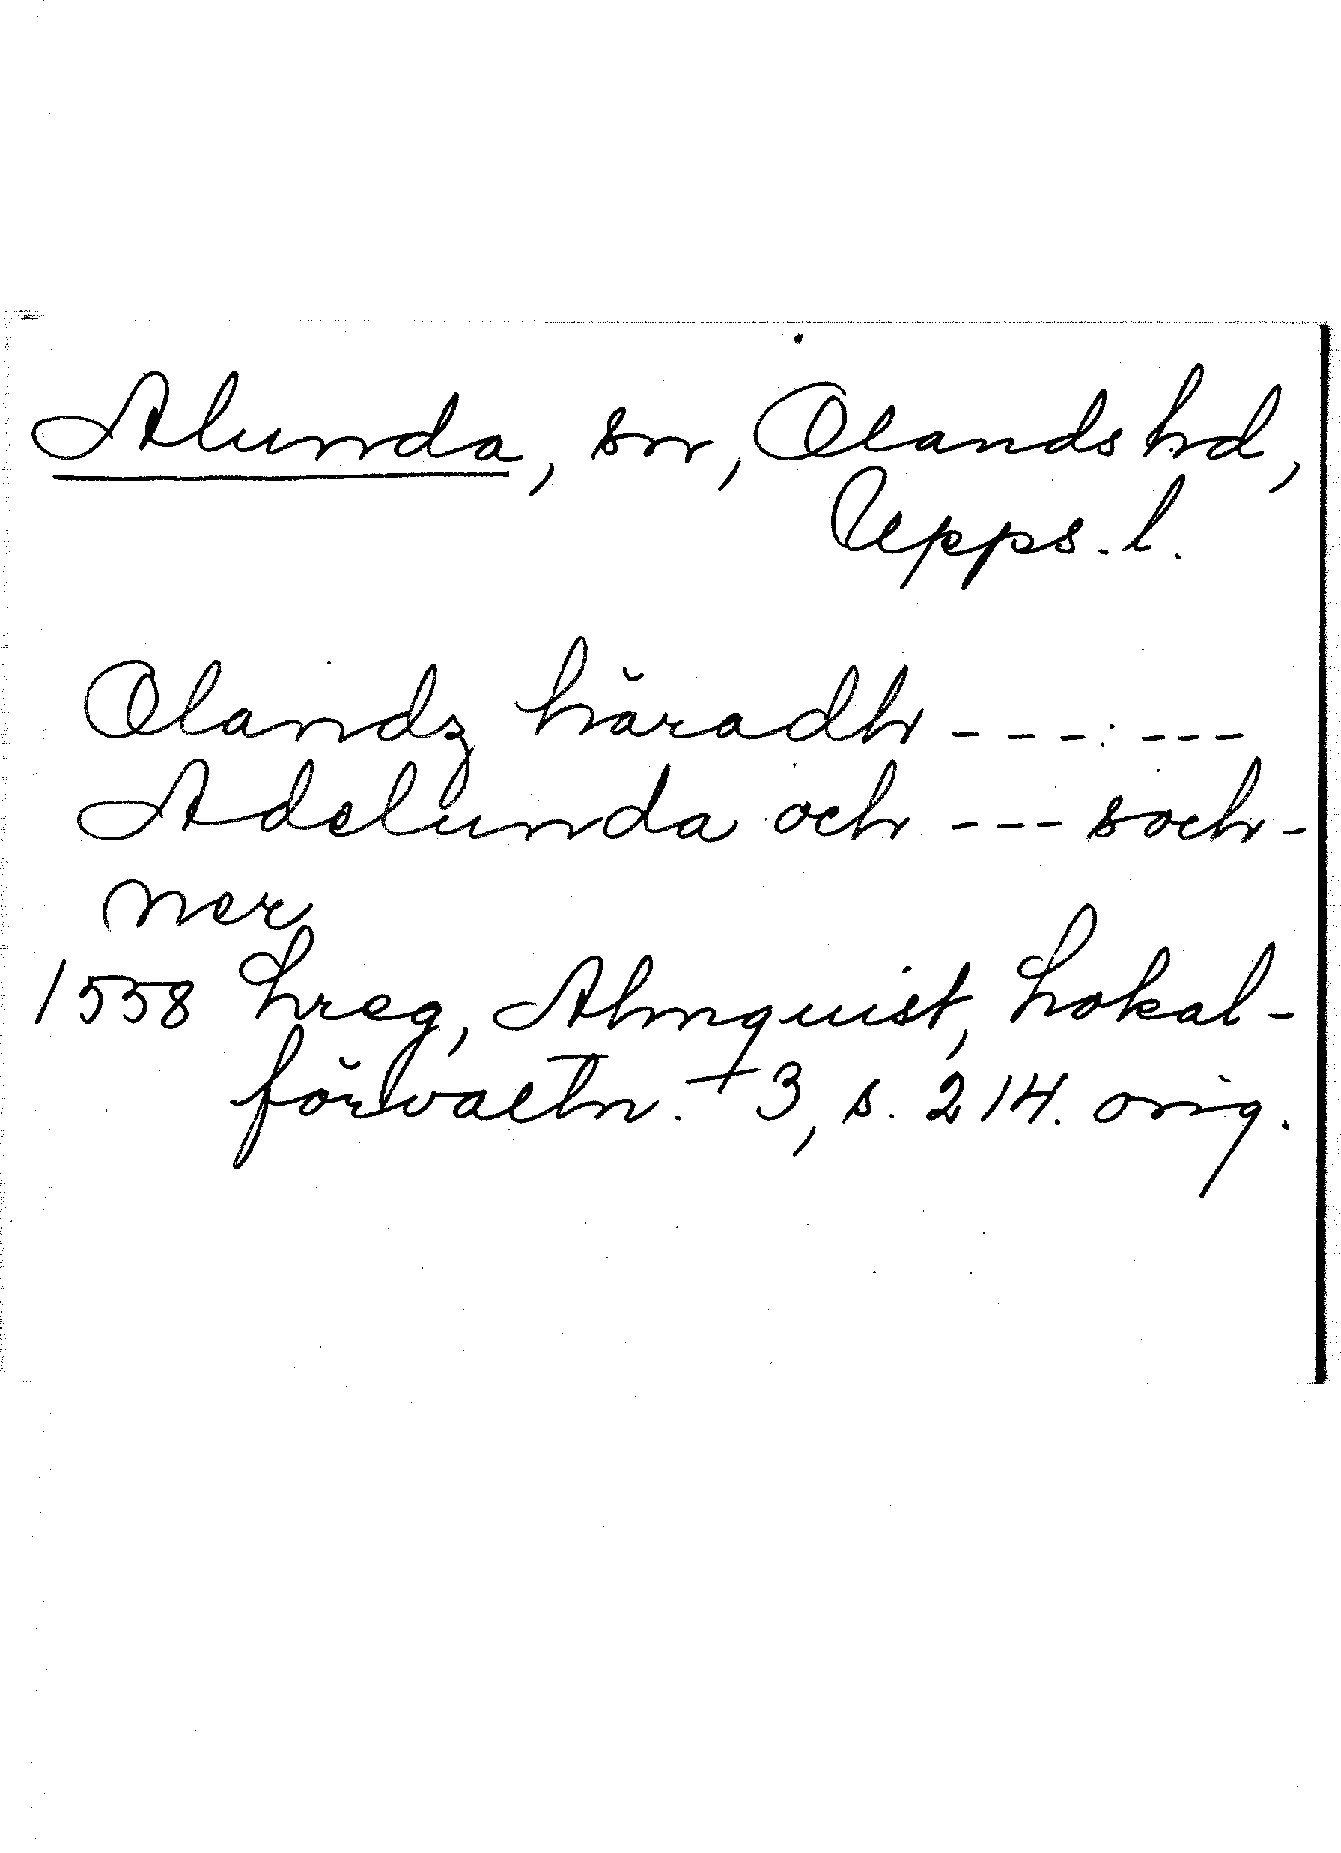 Alunda, sn, Olands hd,
Upps. l.
Olandz häradh --- ---
Adelunda och --- soch-
ner
1558 Lreg, Almquist, Lokal-
förvaltn. 3, s. 214. orig.